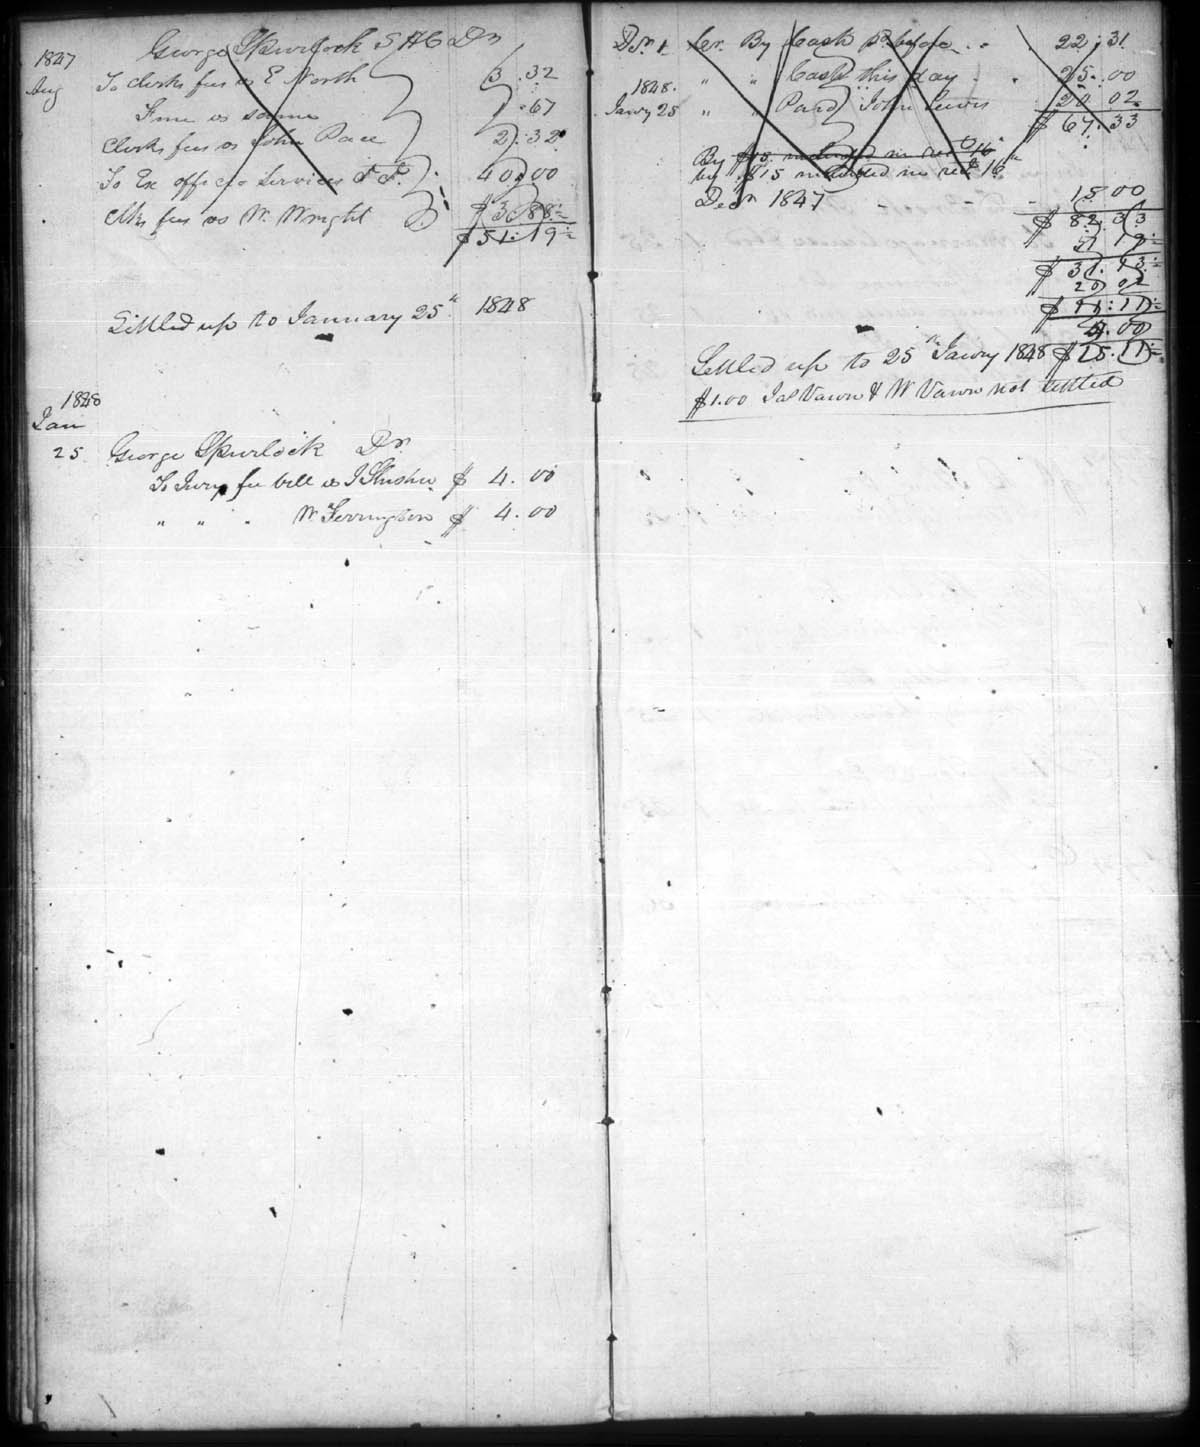 1847 George Spurlock S H C Dr
Aug To clerks fees vs E North 3.32
Fine vs same .67
Clerks fees vs John Pace 2.32
To Ex officio Services 40.00
Clks fees vs W. Wright $3.88½
$51.19½
Settled up to January 25th 1848
1848
Jan
25 George Spurlock Dr
To Jury fee bill vs J $ 4.00
" " " W $ 4.00
Dr. 1 Cr. By Cash pr before 22.31
1848. " " Cash this day 25.00
Jany 25 " " Paid John Lewis 20 02
$ 67.33
By $15 included in rect 16th
by $15 included in rect 16th
Decr 1847 15 00
$ 82.33
51 19½
$ 31.13½
20 02
$ 11.11½
4.00
Settled up to 25th Jany 1848 $15.11½
$1.00 Jas Vawn & W Vawn not settled